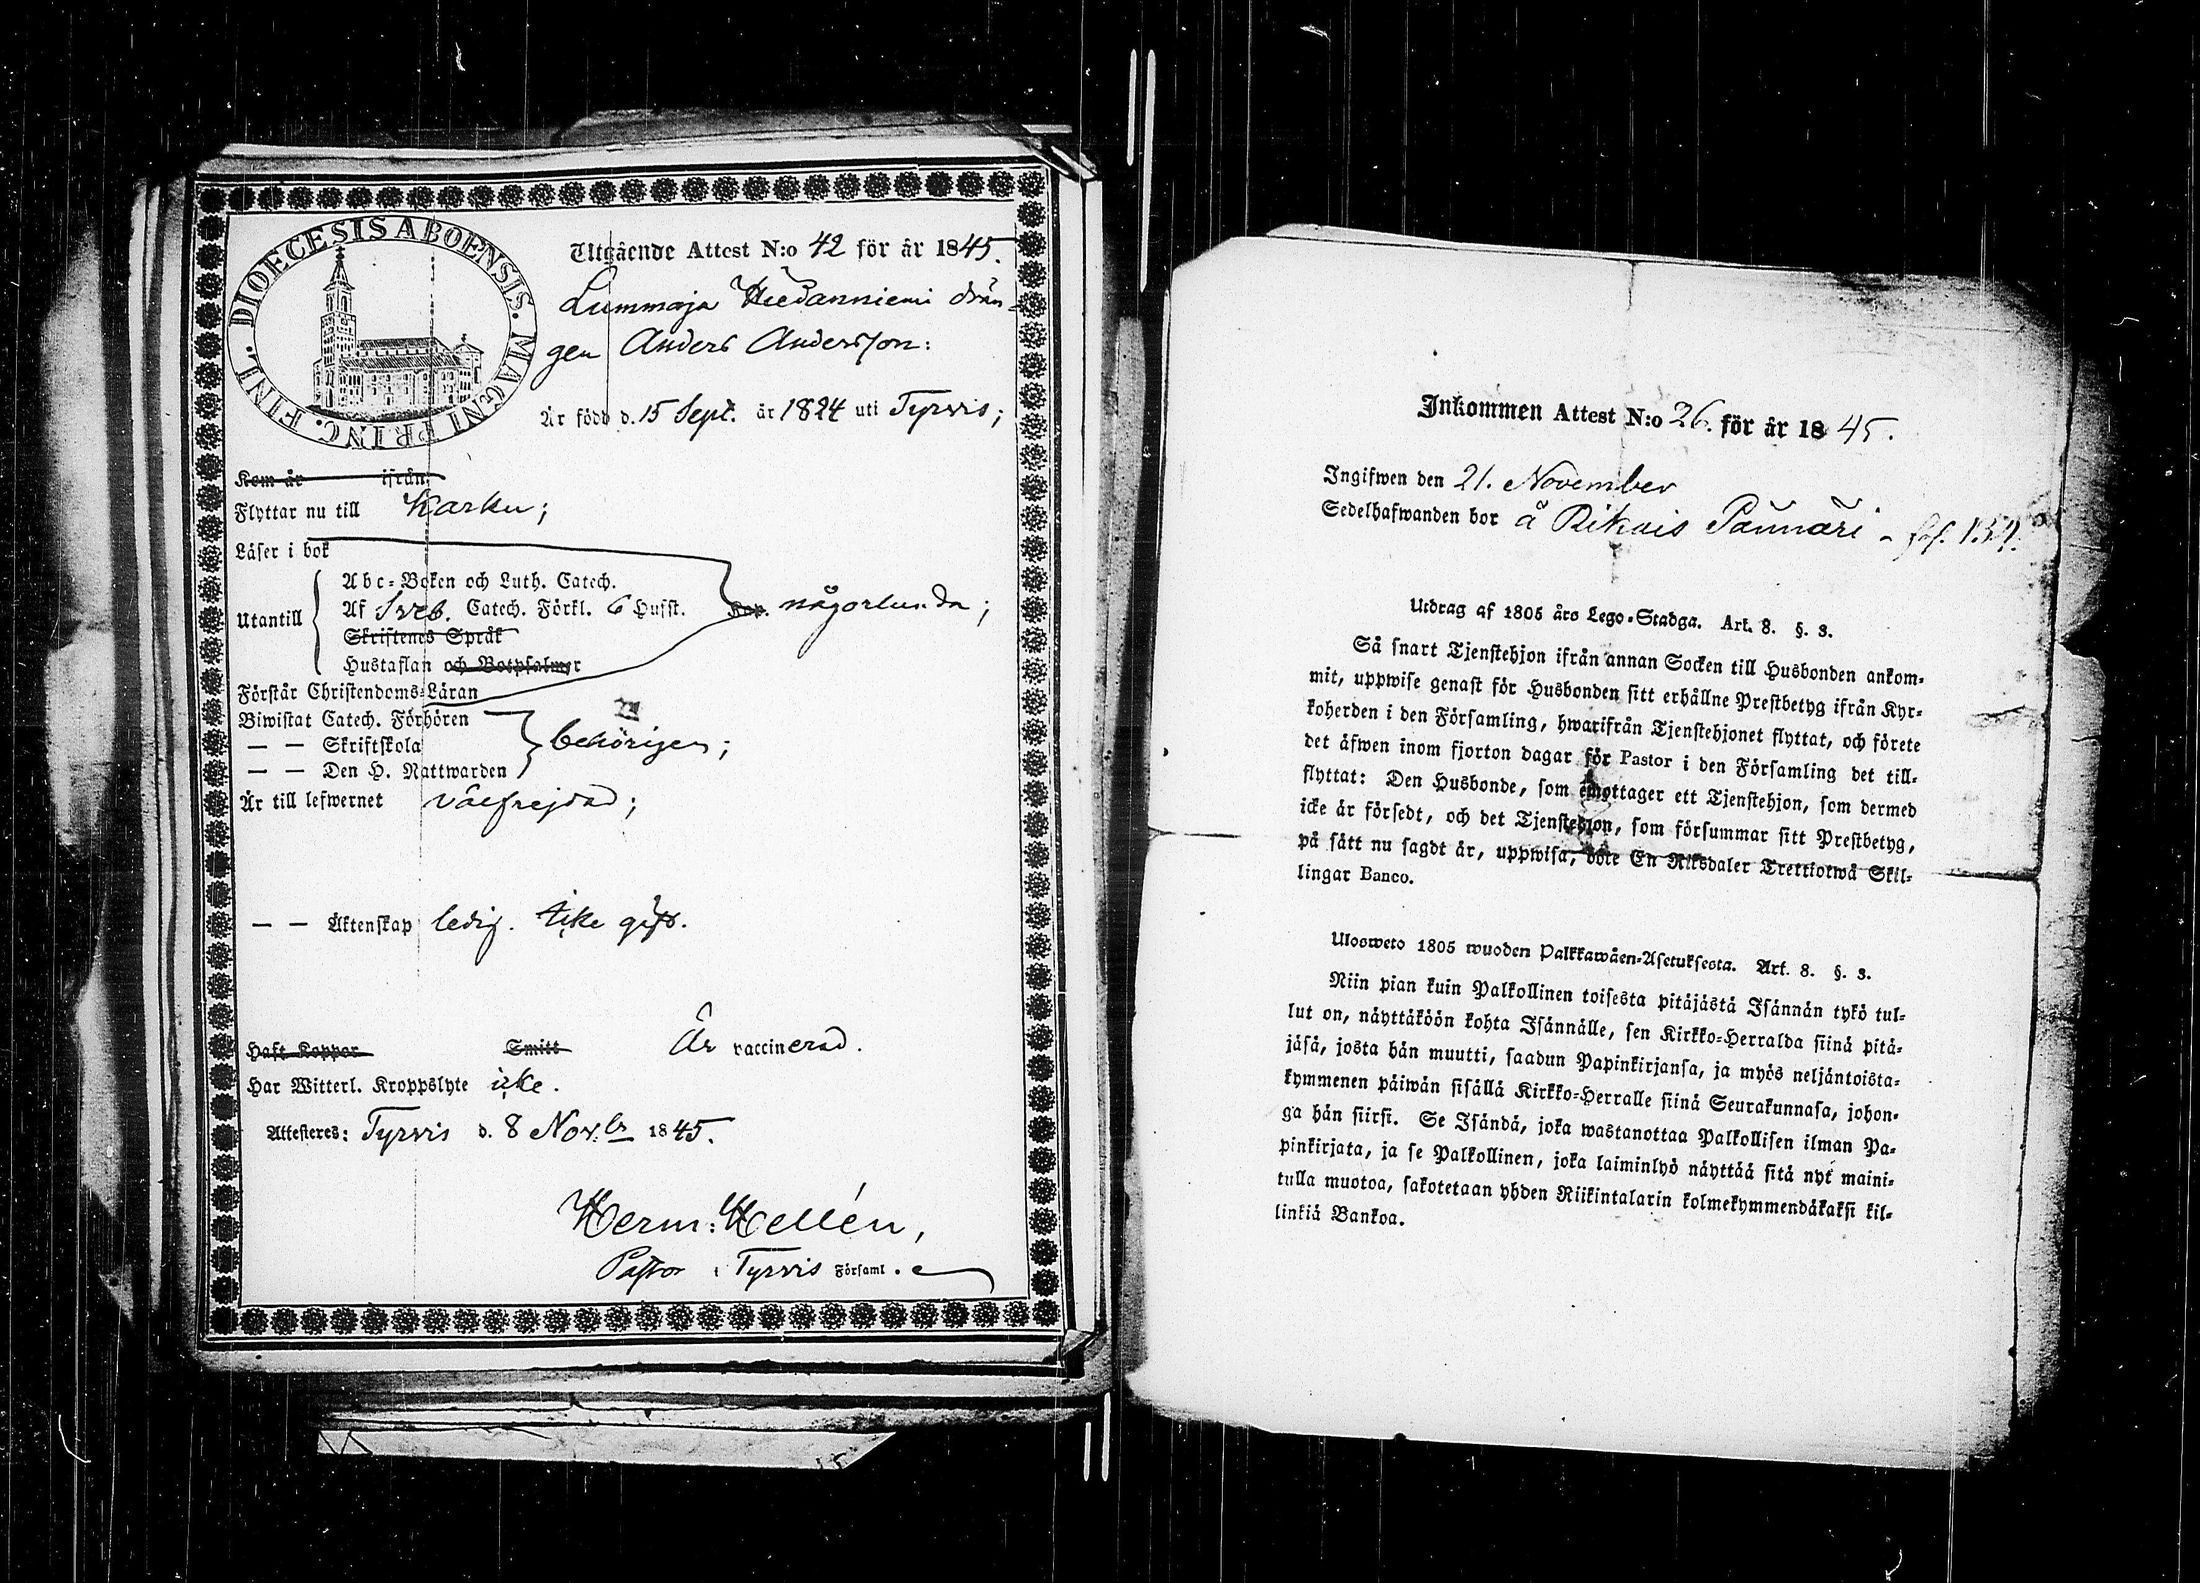 DIOECESIS ABOENSIS. MAGNI PRINC. FINL.
Utgående Attest N:o 42 för år 1845.
Lummaja Hiedanniemi drän-
gen Anders Andersson:
Är född d. 15 Sept. år 1824 uti Tyrvis;
Kom år ifrån
Flyttar nu till Karku;
Läser i bok
Utantill
Abc-Boken och Luth. Catech.
Af Sveb. Catech. Förkl. 6 Hufst. Kap. någorlunda;
Skriftenes Språk
Hustaflan och Botpsalmer
Förstår Christendoms-Läran
Biwistat Catech. Förhören
— — Skriftskola behörigen;
— — Den H. Nattwarden
Är till lefwernet välfrejdad;
— — Äktenskap ledig. Icke gift.
Haft Koppor Smitt Är vaccinerad.
Har Witterl. Kroppslyte icke.
Attesteres: Tyrvis d. 8 Nov:br 1845.
Herm: Hellén,
Pastor i Tyrvis Församl.
Inkommen Attest N:o 26. för år 1845.
Ingifwen den 21. November
Sedelhafwanden bor å Rikais Pännäri - fol. 159.
Utdrag af 1805 års Lego-Stadga. Art. 8. §. 3.
Så snart Tjenstehjon ifrån annan Socken till Husbonden ankom-
mit, uppwise genast för Husbonden sitt erhållne Prestbetyg ifrån Kyr-
koherden i den Församling, hwarifrån Tjenstehjonet flyttat, och förete
det äfwen inom fjorton dagar för Pastor i den Församling det till-
flyttat: Den Husbonde, som emottager ett Tjenstehjon, som dermed
icke är försedt, och det Tjenstehjon, som försummar sitt Prestbetyg,
på sätt nu sagdt är, uppwisa, böte En Riksdaler Trettiotwå Skil-
lingar Banco.
Ulosweto 1805 wuoden Palkkawäen-Asetuksesta. Art. 8. §. 3.
Niin pian kuin Palkollinen toisesta pitäjästä Isännän tykö tul-
lut on, näyttäköön kohta Isännälle, sen Kirkko-Herralda siinä pitä-
jäsä, josta hän muutti, saadun Papinkirjansa, ja myös neljäntoista-
kymmenen päiwän sisällä Kirkko-Herralle siinä Seurakunnasa, johon-
ga hän siirsi. Se Isändä, joka wastanottaa Palkollisen ilman Pa-
pinkirjata, ja se Palkollinen, joka laiminlyö näyttää sitä nyt maini-
tulla muotoa, sakotetaan yhden Riikintalarin kolmekymmendäkaksi kil-
linkiä Bankoa.